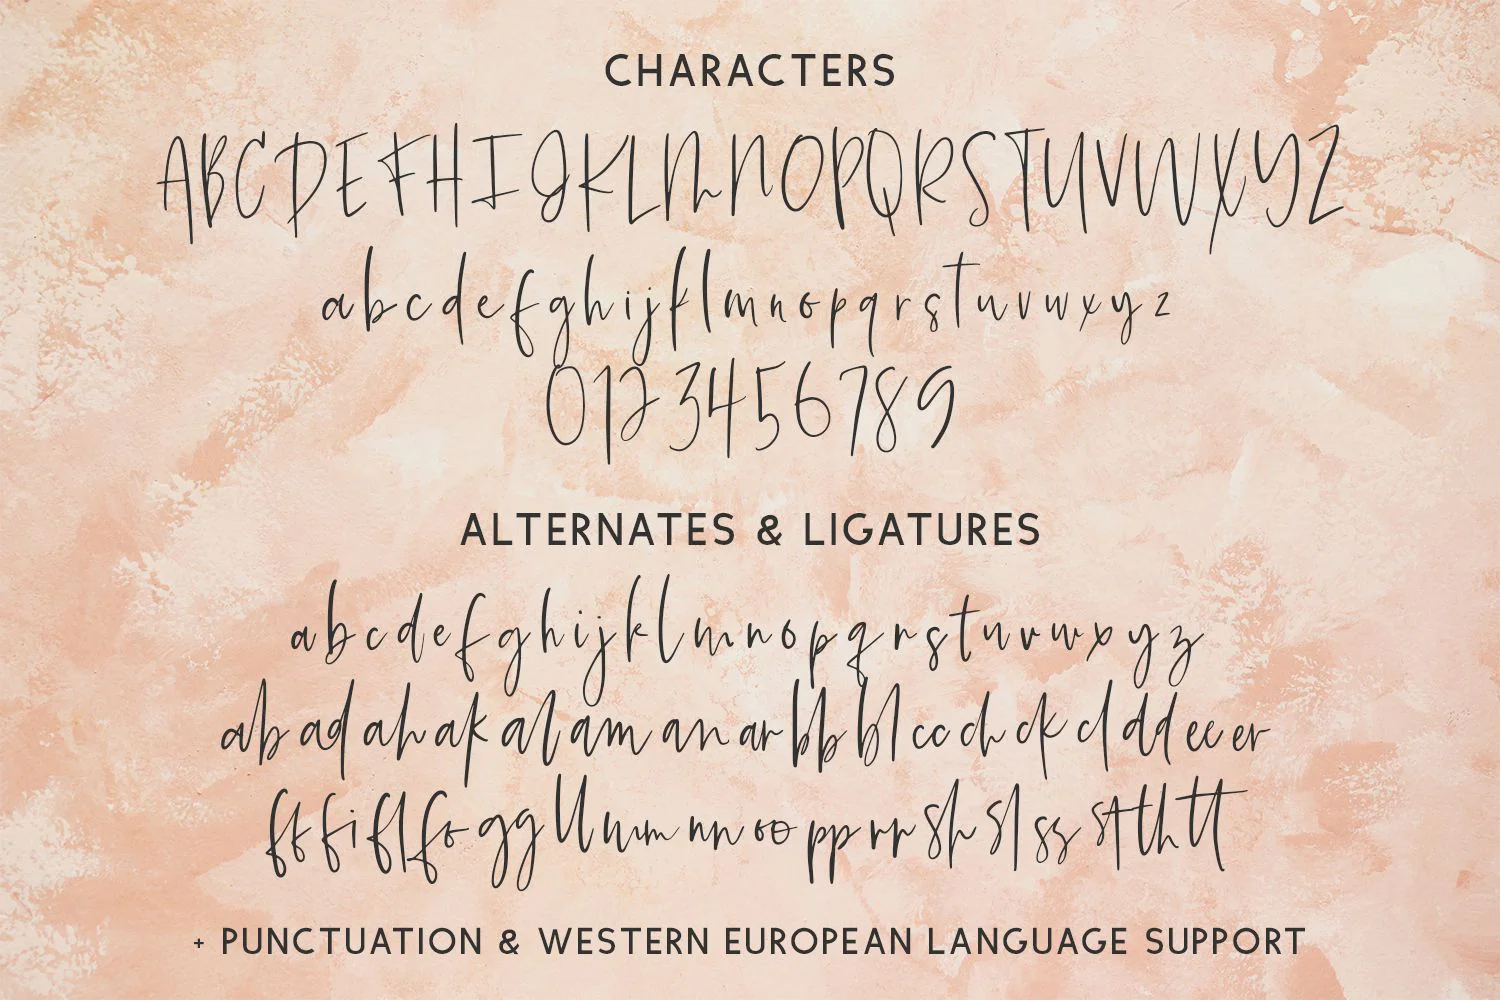 CHARACTERS
ABCDEFHIJKLMNOPQRSTUVWXYZ
abcdefghijklmnopqrstuvwxyz
0123456789
ALTERNATES & LIGATURES
abcdefghijklmnopqrstuvwxyz
ab ad ah ak al am an ar bb bl cc ch ck cl dd ee er
ff fi fl fo gg ll mm nn oo pp rr sh sl ss st th tt
+ PUNCTUATION & WESTERN EUROPEAN LANGUAGE SUPPORT